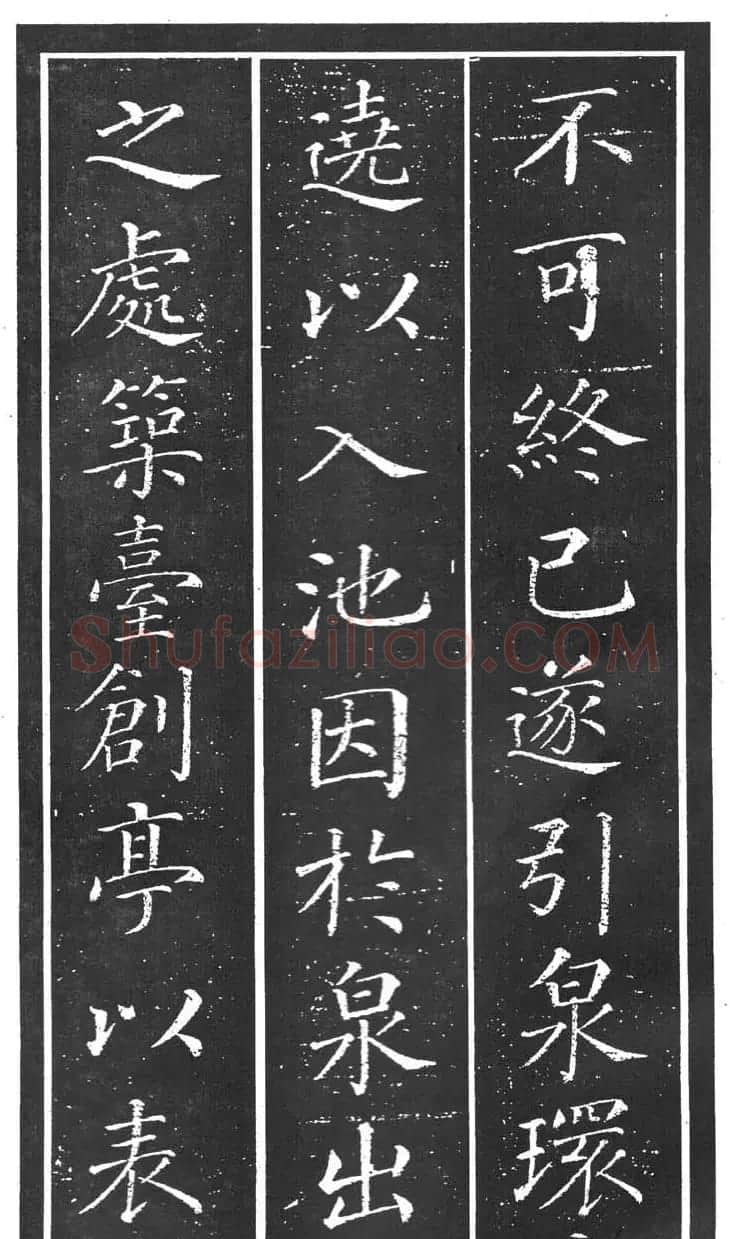 不可終已遂引泉環
遶以入池因於泉出
之處築臺創亭以表
Shufaziliao.COM